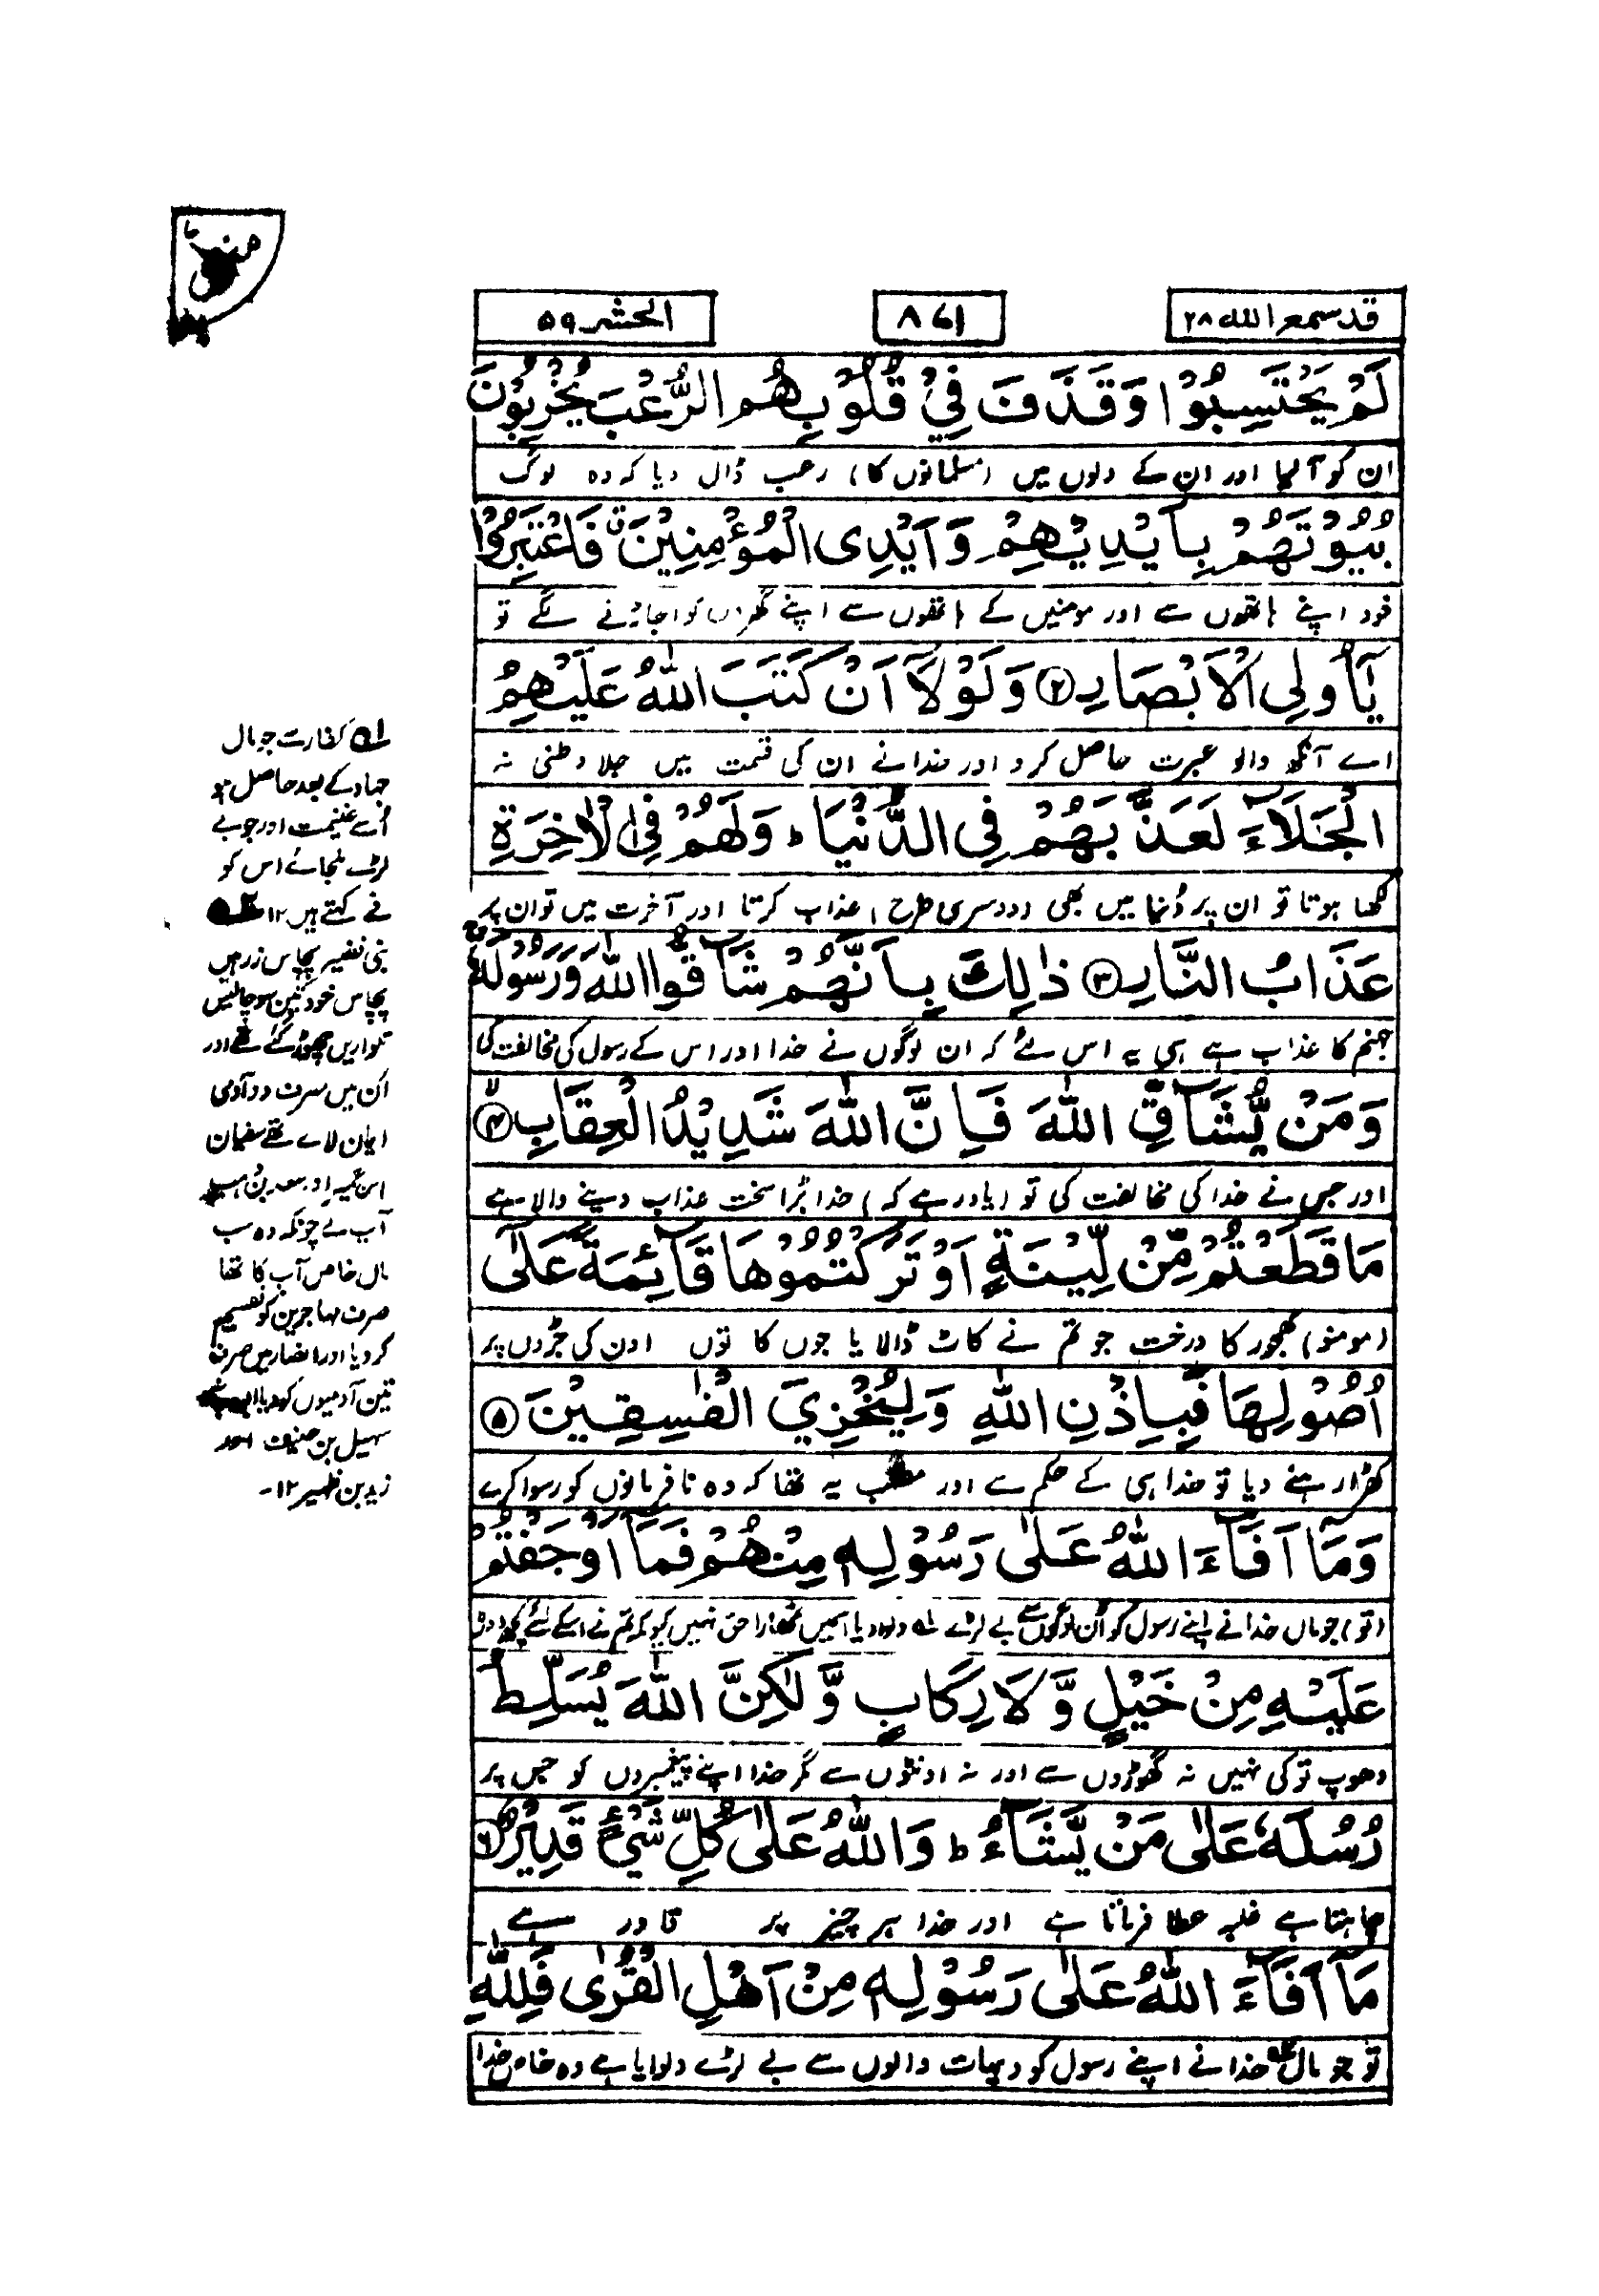 قد سمع الله ۲۸
۸۷۱
الحشر ۵۹
لَمْ يَحْتَسِبُوْا وَقَذَفَ فِيْ قُلُوْبِهِمُ الرُّعْبَ يُخْرِبُوْنَ
ان کو آلیا اور ان کے دلوں میں (مسلمانوں کا) رعب ڈال دیا کہ وہ لوگ
بُيُوْتَهُمْ بِاَيْدِيْهِمْ وَاَيْدِى الْمُؤْمِنِيْنَ فَاعْتَبِرُوْا
خود اپنے ہاتھوں سے اور مومنین کے ہاتھوں سے اپنے گھروں کو اجاڑنے لگے تو
يٰٓاُولِى الْاَبْصَارِ ﴿۲﴾ وَلَوْلَآ اَنْ كَتَبَ اللّٰهُ عَلَيْهِمُ
اے آنکھ والو عبرت حاصل کرو اور خدا نے ان کی قسمت میں جلا وطنی نہ
الْجَلَآءَ لَعَذَّبَهُمْ فِى الدُّنْيَا ؕ وَلَهُمْ فِى الْاٰخِرَةِ
لکھا ہوتا تو ان پر دُنیا میں بھی (دوسری طرح) عذاب کرتا اور آخرت میں تو ان پر
عَذَابُ النَّارِ ﴿۳﴾ ذٰلِكَ بِاَنَّهُمْ شَآقُّوا اللّٰهَ وَرَسُوْلَهٗ
جہنم کا عذاب ہے ہی یہ اس لئے کہ ان لوگوں نے خدا اور اس کے رسول کی مخالفت کی
وَمَنْ يُّشَآقِّ اللّٰهَ فَاِنَّ اللّٰهَ شَدِيْدُ الْعِقَابِ ﴿۴﴾
اور جس نے خدا کی مخالفت کی تو (یاد رہے کہ) خدا بڑا سخت عذاب دینے والا ہے
مَا قَطَعْتُمْ مِّنْ لِّيْنَةٍ اَوْ تَرَكْتُمُوْهَا قَآئِمَةً عَلٰٓى
(مومنو) کھجور کا درخت جو تم نے کاٹ ڈالا یا جوں کا توں اون کی جڑوں پر
اُصُوْلِهَا فَبِاِذْنِ اللّٰهِ وَلِيُخْزِيَ الْفٰسِقِيْنَ ﴿۵﴾
کھڑا رہنے دیا تو خدا ہی کے حکم سے اور مطلب یہ تھا کہ وہ نافرمانوں کو رسوا کرے
وَمَآ اَفَآءَ اللّٰهُ عَلٰى رَسُوْلِهٖ مِنْهُمْ فَمَآ اَوْجَفْتُمْ
(تو) جو مال خدا نے اپنے رسول کو اُن لوگوں سے بے لڑے دلوا دیا اسمیں تمھارا حق نہیں کیونکہ تم نے اسکے لئے کچھ دوڑ
عَلَيْهِ مِنْ خَيْلٍ وَّلَا رِكَابٍ وَّلٰكِنَّ اللّٰهَ يُسَلِّطُ
دھوپ تو کی نہیں نہ گھوڑوں سے اور نہ اونٹوں سے مگر خدا اپنے پیغمبروں کو جس پر
رُسُلَهٗ عَلٰى مَنْ يَّشَآءُ ؕ وَاللّٰهُ عَلٰى كُلِّ شَيْءٍ قَدِيْرٌ ﴿۶﴾
چاہتا ہے غلبہ عطا فرماتا ہے اور خدا ہر چیز پر قادر ہے
مَآ اَفَآءَ اللّٰهُ عَلٰى رَسُوْلِهٖ مِنْ اَهْلِ الْقُرٰى فَلِلّٰهِ
تو جو مال خدا نے اپنے رسول کو دیہات والوں سے بے لڑے دلوایا ہے وہ خاص خدا
کفار سے جو مال
جہاد کے بعد حاصل ہو
اُسے غنیمت اور جو بے
لڑے ملجائے اس کو
فے کہتے ہیں ۱۲
بنی نضیر پچاس زرہیں
پچاس خود تین سو چالیس
تلواریں چھوڑ گئے تھے اور
اُن میں صرف دو آدمی
ایمان لائے تھے سفیان
ابن عمیر اور سعد بن
آپ نے چونکہ وہ سب
مال خاص آپ کا تھا
صرف مہاجرین کو تقسیم
کر دیا اور انصار میں صرف
تین آدمیوں کو دیا
سہیل بن حنیف اور
زید بن ظہیر ۱۲-